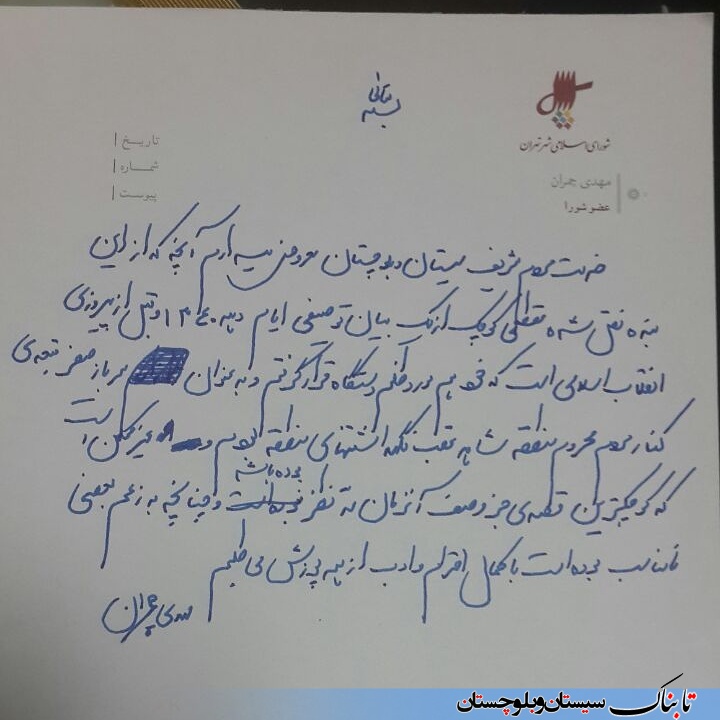 بسمه تعالی
شورای اسلامی شهر تهران
مهدی چمران
عضو شورا
تاریخ |
شماره |
پیوست |
خدمت مردم شریف سیستان و بلوچستان معروض میدارم آنچه که از این
بنده نقل شده نقطه‌ی کوچک از یک بیان توصیفی ایام دهه ۱۳۴۰ و قبل از پیروزی
انقلاب اسلامی است که خود هم مورد ظلم دستگاه قرار گرفتم و به عنوان سرباز صفر تبعیدی
کنار مردم محروم منطقه شاهد عقب نگهداشتنهای منطقه بودم و غیر ممکن است
که کوچکترین قصدی جز وصف آنزمان مد نظر بوده باشد و چنانچه به زعم بعضی
نامناسب بوده است با کمال احترام و ادب از همه پوزش می طلبم
مهدی چمران
تابناک سیستان و بلوچستان